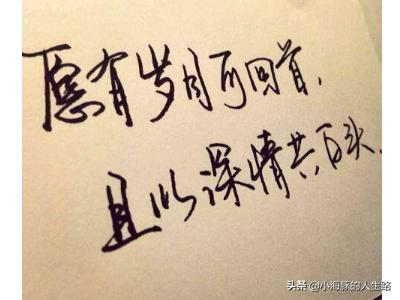 愿有岁月可回首,
且以深情共百头.
头条 @小海豚的人生路